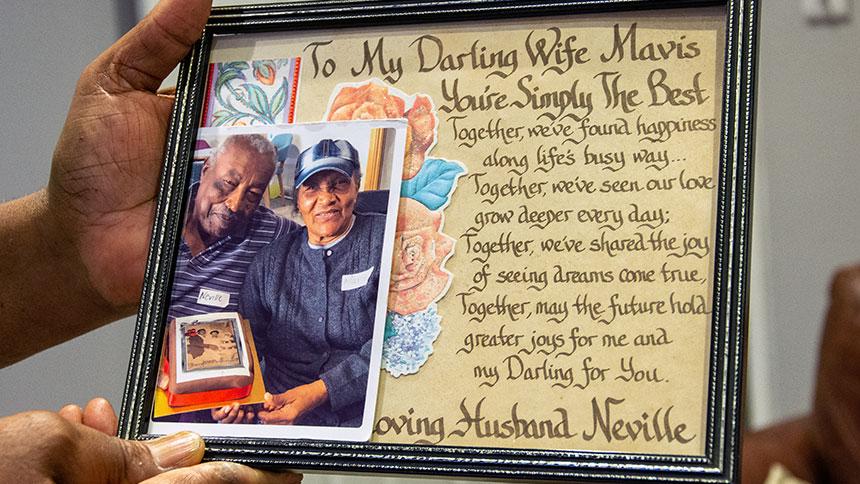 To My Darling Wife Mavis
You're Simply The Best
Together, we've found happiness
along life's busy way...
Together, we've seen our love
grow deeper every day;
Together, we've shared the joy
of seeing dreams come true,
Together, may the future hold
greater joys for me and
my Darling for You.
oving Husband Neville
Neville